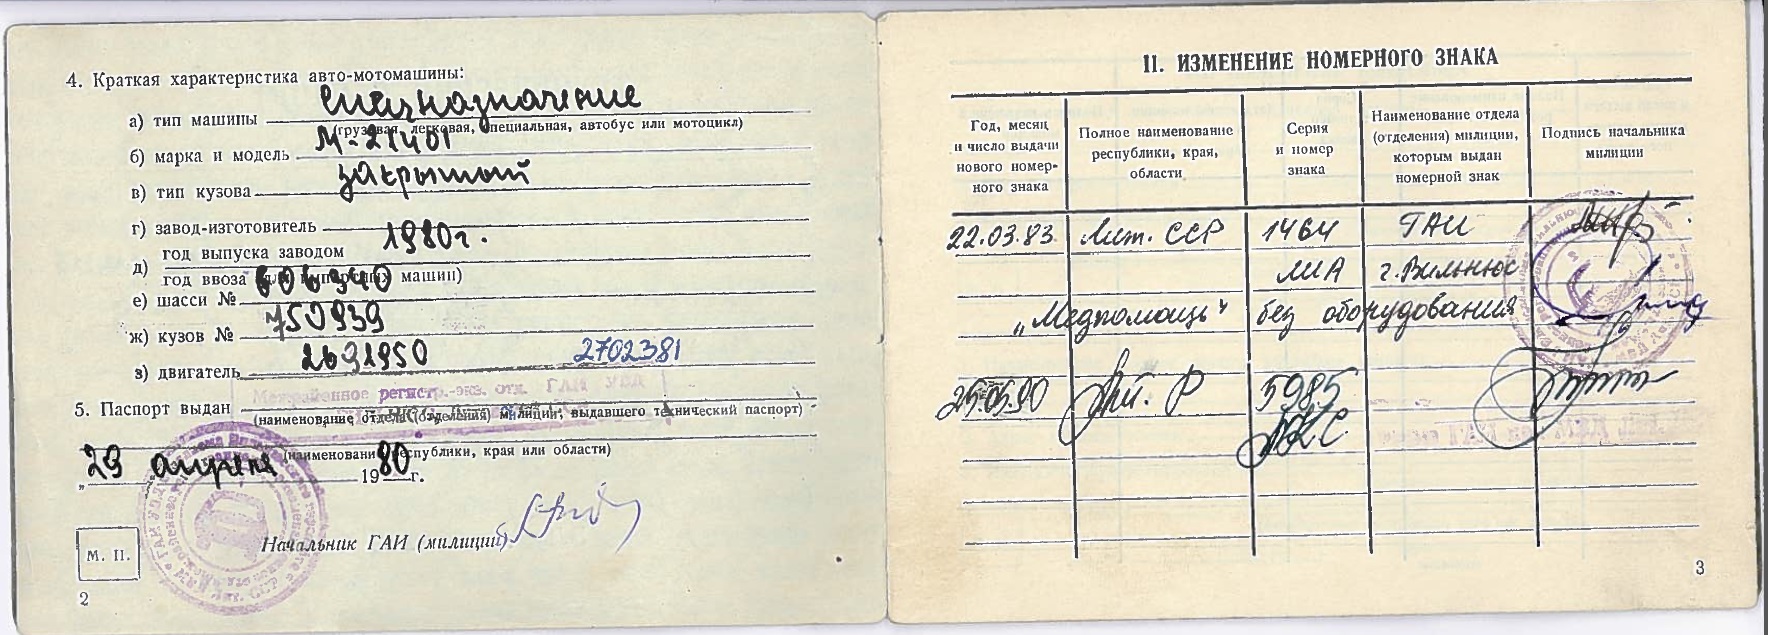 4. Краткая характеристика авто-мотомашины:
а) тип машины спецназначение
(грузовая, легковая, специальная, автобус или мотоцикл)
б) марка и модель М-21401
в) тип кузова закрытый
г) завод-изготовитель
д) год выпуска заводом 1980г.
год ввоза машин)
е) шасси № 606940
ж) кузов № 750939
з) двигатель 2691950 2702381
Межрайонное регистр.-экз. отд. ГАИ УВД
5. Паспорт выдан
(наименование отдела (отделения) милиции, выдавшего технический паспорт)
(наименование республики, края или области)
„29 апреля 1980г.
Начальник ГАИ (милиции)
М. П.
2
II. ИЗМЕНЕНИЕ НОМЕРНОГО ЗНАКА
Год, месяц и число выдачи нового номер-ного знака
Полное наименование республики, края, области
Серия и номер знака
Наименование отдела (отделения) милиции, которым выдан номерной знак
Подпись начальника милиции
22.03.83 Лит. ССР 1464 ГАИ
ЛИА г. Вильнюс
„Медпомощь" без оборудования
25.05.90 Лит. Р 5985
3